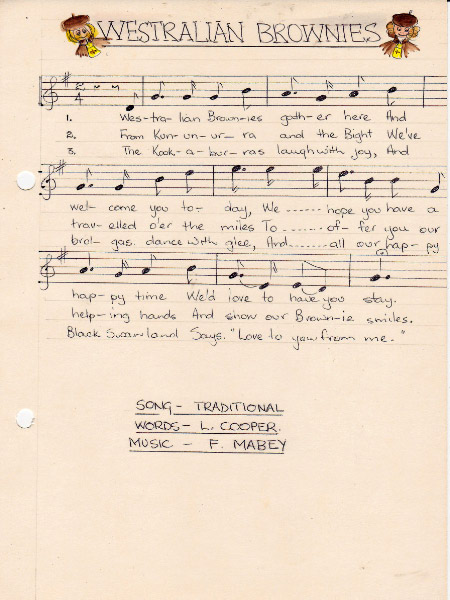 WESTRALIAN BROWNIES
2
4
1. Wes-tra-lian Brown-ies gath-er here And
2. From Kun-un-ur-ra and the Bight We've
3. The Kook-a-bur-ras laugh with joy, And
wel-come you to-day, We ...... hope you have a
trav-elled o'er the miles To ...... of-fer you our
brol-gas dance with glee, And ...... all our hap-py
hap-py time We'd love to have you stay.
help-ing hands And show our Brown-ie smiles.
Black Swanland Says, "Love to you from me."
SONG - TRADITIONAL
WORDS - L. COOPER.
MUSIC - F. MABEY